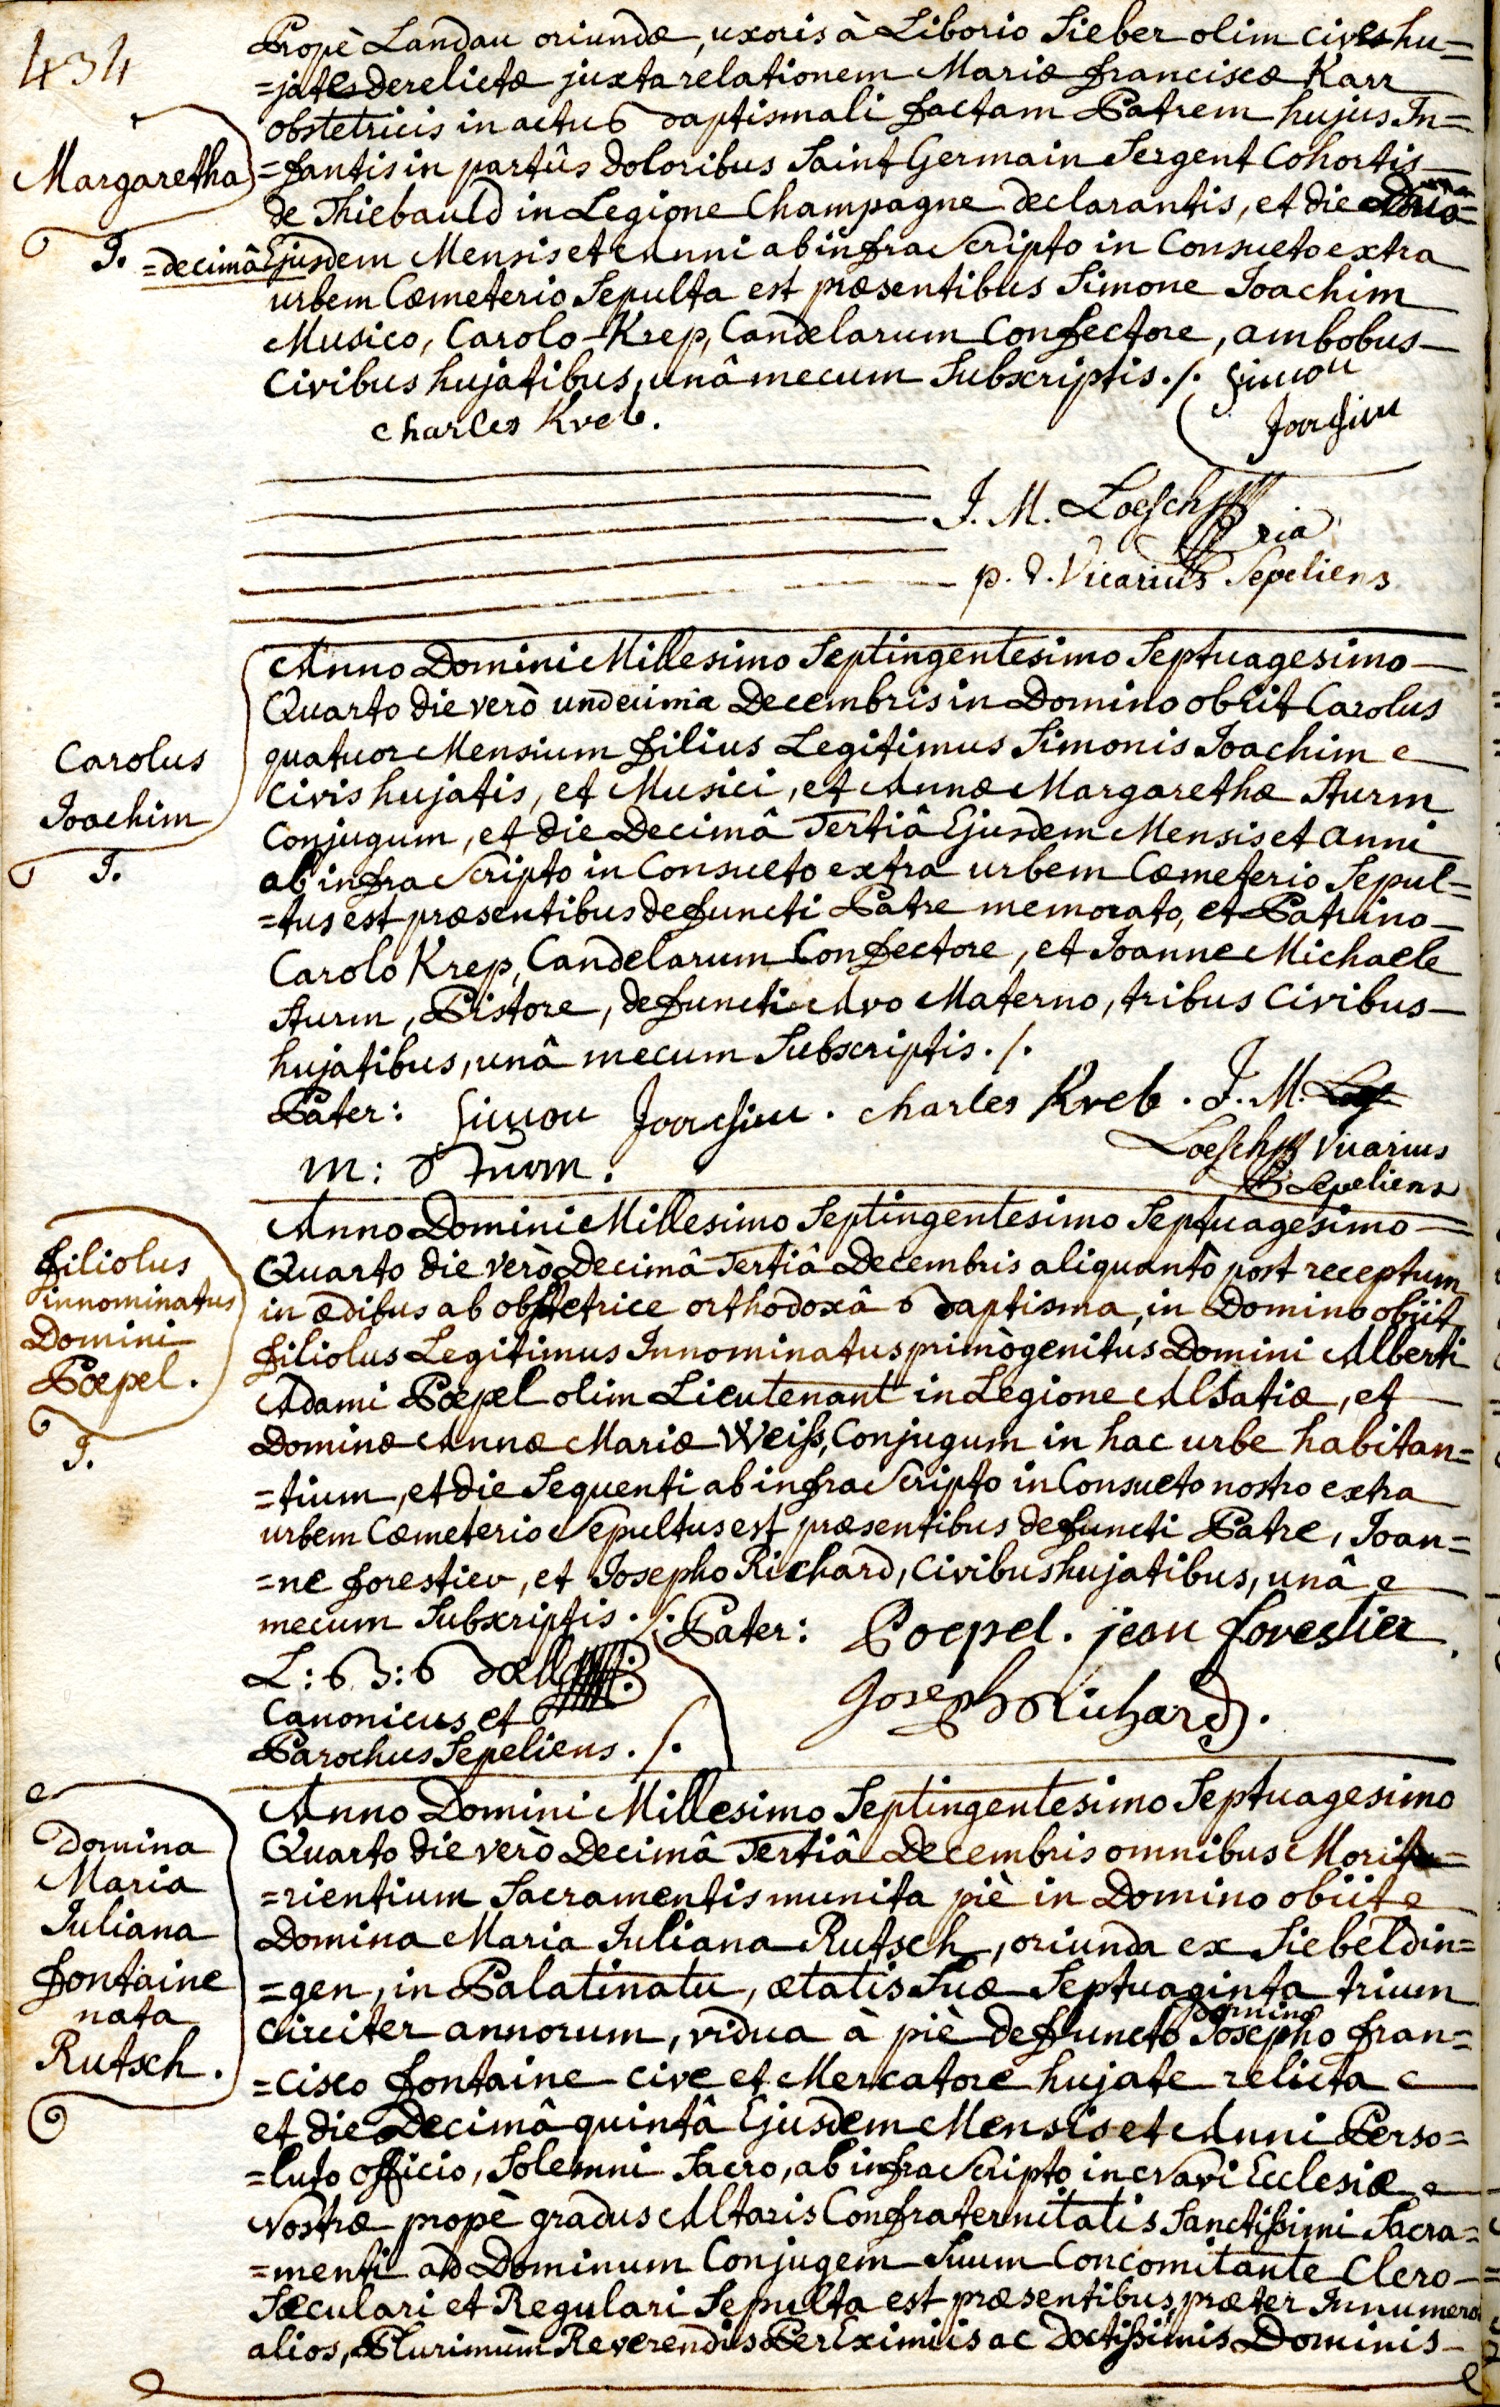 434
Propè Landau oriundæ, uxoris à Liborio Sieber olim cives hu=
=jates derelictæ juxta relationem Mariæ Franciscæ Karr
obstetricis in actu Baptismali factam Patrem hujus In=
Margaretha
=fantis in partûs doloribus Saint Germain Sergent Cohortis
de Thiebauld in Legione Champagne declarantis, et die
J.
=decimâ Ejusdem Mensis et Anni ab infra Scripto in Consueto extra
urbem Cœmeterio Sepulta est præsentibus Simone Joachim
Musico, Carolo Krep, Candelarum Confectore, ambobus
Civibus hujatibus, unâ mecum Subscriptis ./. Simon
Joachim
Charles Kreb.
J. M. Loesch
p. t. Vicarius Sepeliens
Anno Domini Millesimo Septingentesimo Septuagesimo
Quarto die verò undecima Decembris in Domino obiit Carolus
quatuor Mensium Filius Legitimus Simonis Joachim
Carolus
Joachim
J.
Civis hujatis, et Musici, et Annæ Margarethæ Sturm
Conjugum, et die Decimâ Tertiâ Ejusdem Mensis et anni
ab infra Scripto in Consueto extra urbem Cœmeterio Sepul=
=tus est præsentibus defuncti Patre memorato, et Patrino
Carolo Krep, Candelarum Confectore, et Joanne Michaele
Sturm, Pistore, defuncti Avo Materno, tribus Civibus
hujatibus, unâ mecum Subscriptis ./.
Pater: Simon Joachim . Charles Kreb . J. M.
Loesch Vicarius
Sepeliens
m: Sturm.
Anno Domini Millesimo Septingentesimo Septuagesimo
Filiolus
innominatus
Domini
Pœpel.
J.
Quarto die verò Decimâ Tertiâ Decembris aliquantò post receptum
in ædibus ab obstetrice orthodoxâ Baptisma, in Domino obiit
Filiolus Legitimus Innominatus primògenitus Domini Alberti
Adami Pœpel olim Lieutenant in Legione Alsatiæ, et
Dominæ Annæ Mariæ Weiss, Conjugum in hac urbe habitan=
=tium, et die Sequenti ab infra Scripto in Consueto nostro extra
urbem Cœmeterio Sepultus est præsentibus defuncti Patre, Joan=
=ne Forestier, et Josepho Richard, Civibus hujatibus, unâ
mecum Subscriptis ./. Pater: Poepel. jean forestier
Joseph Richard.
Canonicus et
Parochus Sepeliens ./.
Anno Domini Millesimo Septingentesimo Septuagesimo
Domina
Maria
Juliana
Fontaine
nata
Rutsch.
Quarto die verò Decimâ Tertiâ Decembris omnibus
=rientium Sacramentis munita piè in Domino obiit
Domina Maria Juliana Rutsch, oriunda ex Siebeldin=
=gen, in Palatinatu, ætatis Suæ Septuaginta trium
circiter annorum, vidua à piè defuncto Domino Josepho Fran=
=cisco Fontaine cive et Mercatore hujate relicta
et die Decimâ quintâ Ejusdem Mensis et Anni Perso=
=luto officio, Solemni Sacro, ab infra Scripto in Navi Ecclesiæ
Nostræ propè gradus Altaris Confraternitatis Sanctissimi Sacra=
=menti ad Dominum Conjugem Suum Concomitante Clero
Sæculari et Regulari Sepulta est præsentibus, præter Innumeros
alios, Plurimùm Reverendis Per Eximiis ac Doctissimis Dominis